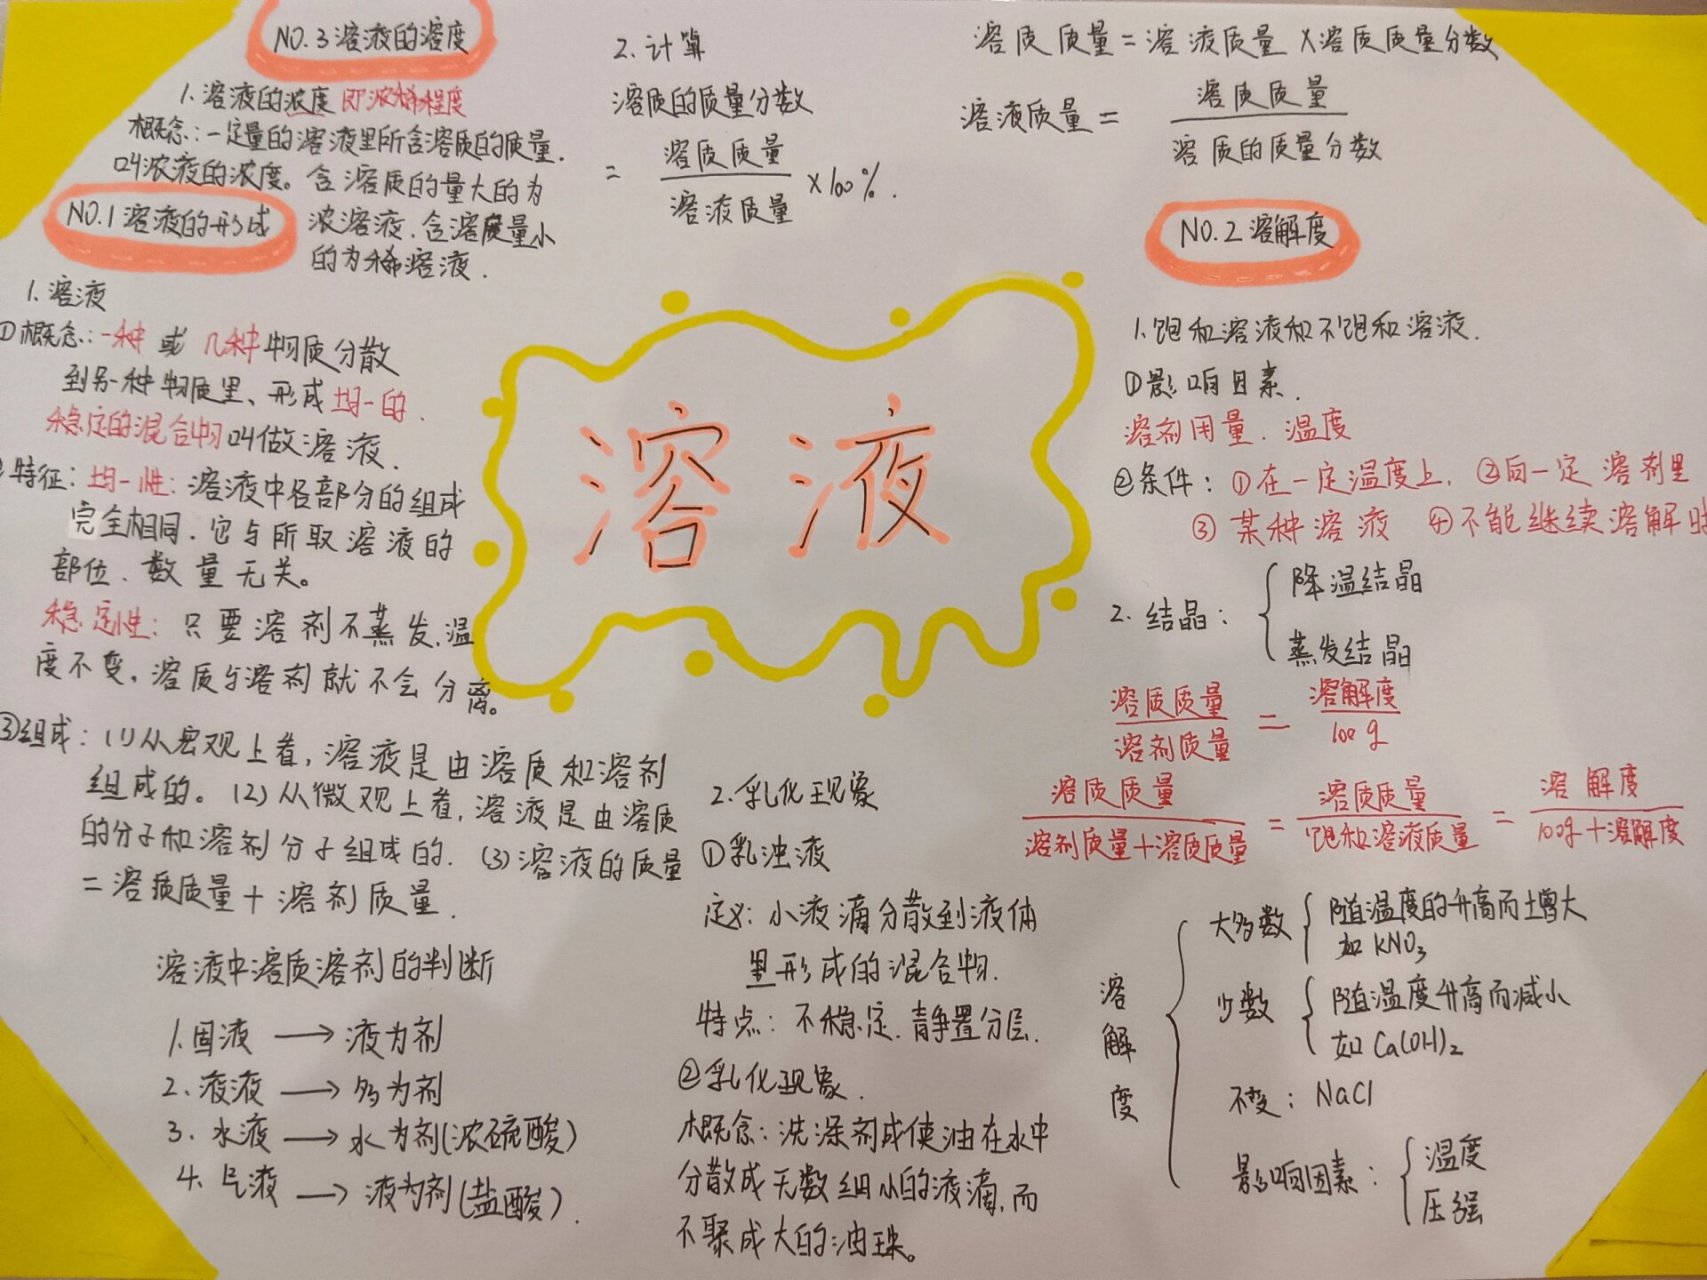 NO.3 溶液的溶度
1. 溶液的浓度 即浓稀程度
概念:一定量的溶液里所含溶质的质量.
叫浓液的浓度。含溶质的量大的为
浓溶液.含溶质量小
的为稀溶液.
2.计算
溶质的质量分数
= 溶质质量
溶液质量 ×100%.
溶质质量=溶液质量×溶质质量分数
溶液质量= 溶质质量
溶质的质量分数
NO.1 溶液的形成
1. 溶液
①概念:一种 或 几种 物质分散
到另一种物质里、形成均一的.
稳定的混合物叫做溶液.
特征:均一性:溶液中各部分的组成
完全相同.它与所取溶液的
部位、数量无关。
稳定性:只要溶剂不蒸发,温
度不变,溶质与溶剂就不会分离。
③组成:(1)从宏观上看,溶液是由溶质和溶剂
组成的。(2)从微观上看,溶液是由溶质
的分子和溶剂分子组成的.(3)溶液的质量
=溶质质量+溶剂质量.
溶液中溶质溶剂的判断
1.固液 → 液为剂
2.液液 → 多为剂
3.水液 → 水为剂(浓硫酸)
4.气液 → 液为剂(盐酸).
溶液
2.乳化现象
①乳浊液
定义:小液滴分散到液体
里形成的混合物.
特点:不稳定.静置分层.
②乳化现象.
概念:洗涤剂成使油在水中
分散成无数细小的液滴,而
不聚成大的油珠。
NO.2 溶解度
1.饱和溶液和不饱和溶液.
①影响因素.
溶剂用量.温度
②条件:①在一定温度上.②向一定溶剂里
③某种溶液 ④不能继续溶解时
2.结晶: 降温结晶
蒸发结晶
溶质质量
溶剂质量 = 溶解度
100g
溶质质量
溶剂质量+溶质质量 = 溶质质量
饱和溶液质量 = 溶解度
100g+溶解度
溶解度
大多数 随温度的升高而增大
如 KNO₃
少数 随温度升高而减小
如 Ca(OH)₂
不变:NaCl
影响因素: 温度
压强